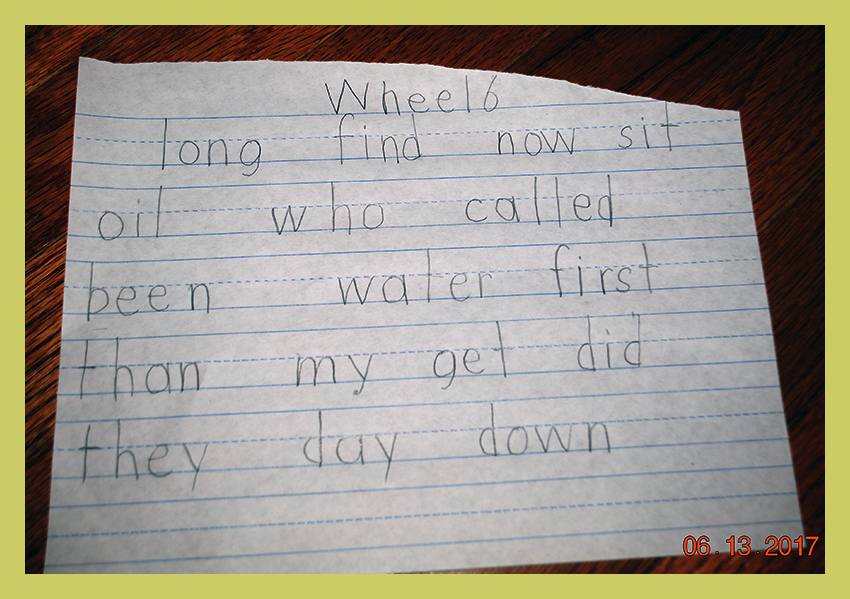 Wheel6
long find now sit
oil who called
been water first
than my get did
they day down
06.13.2017